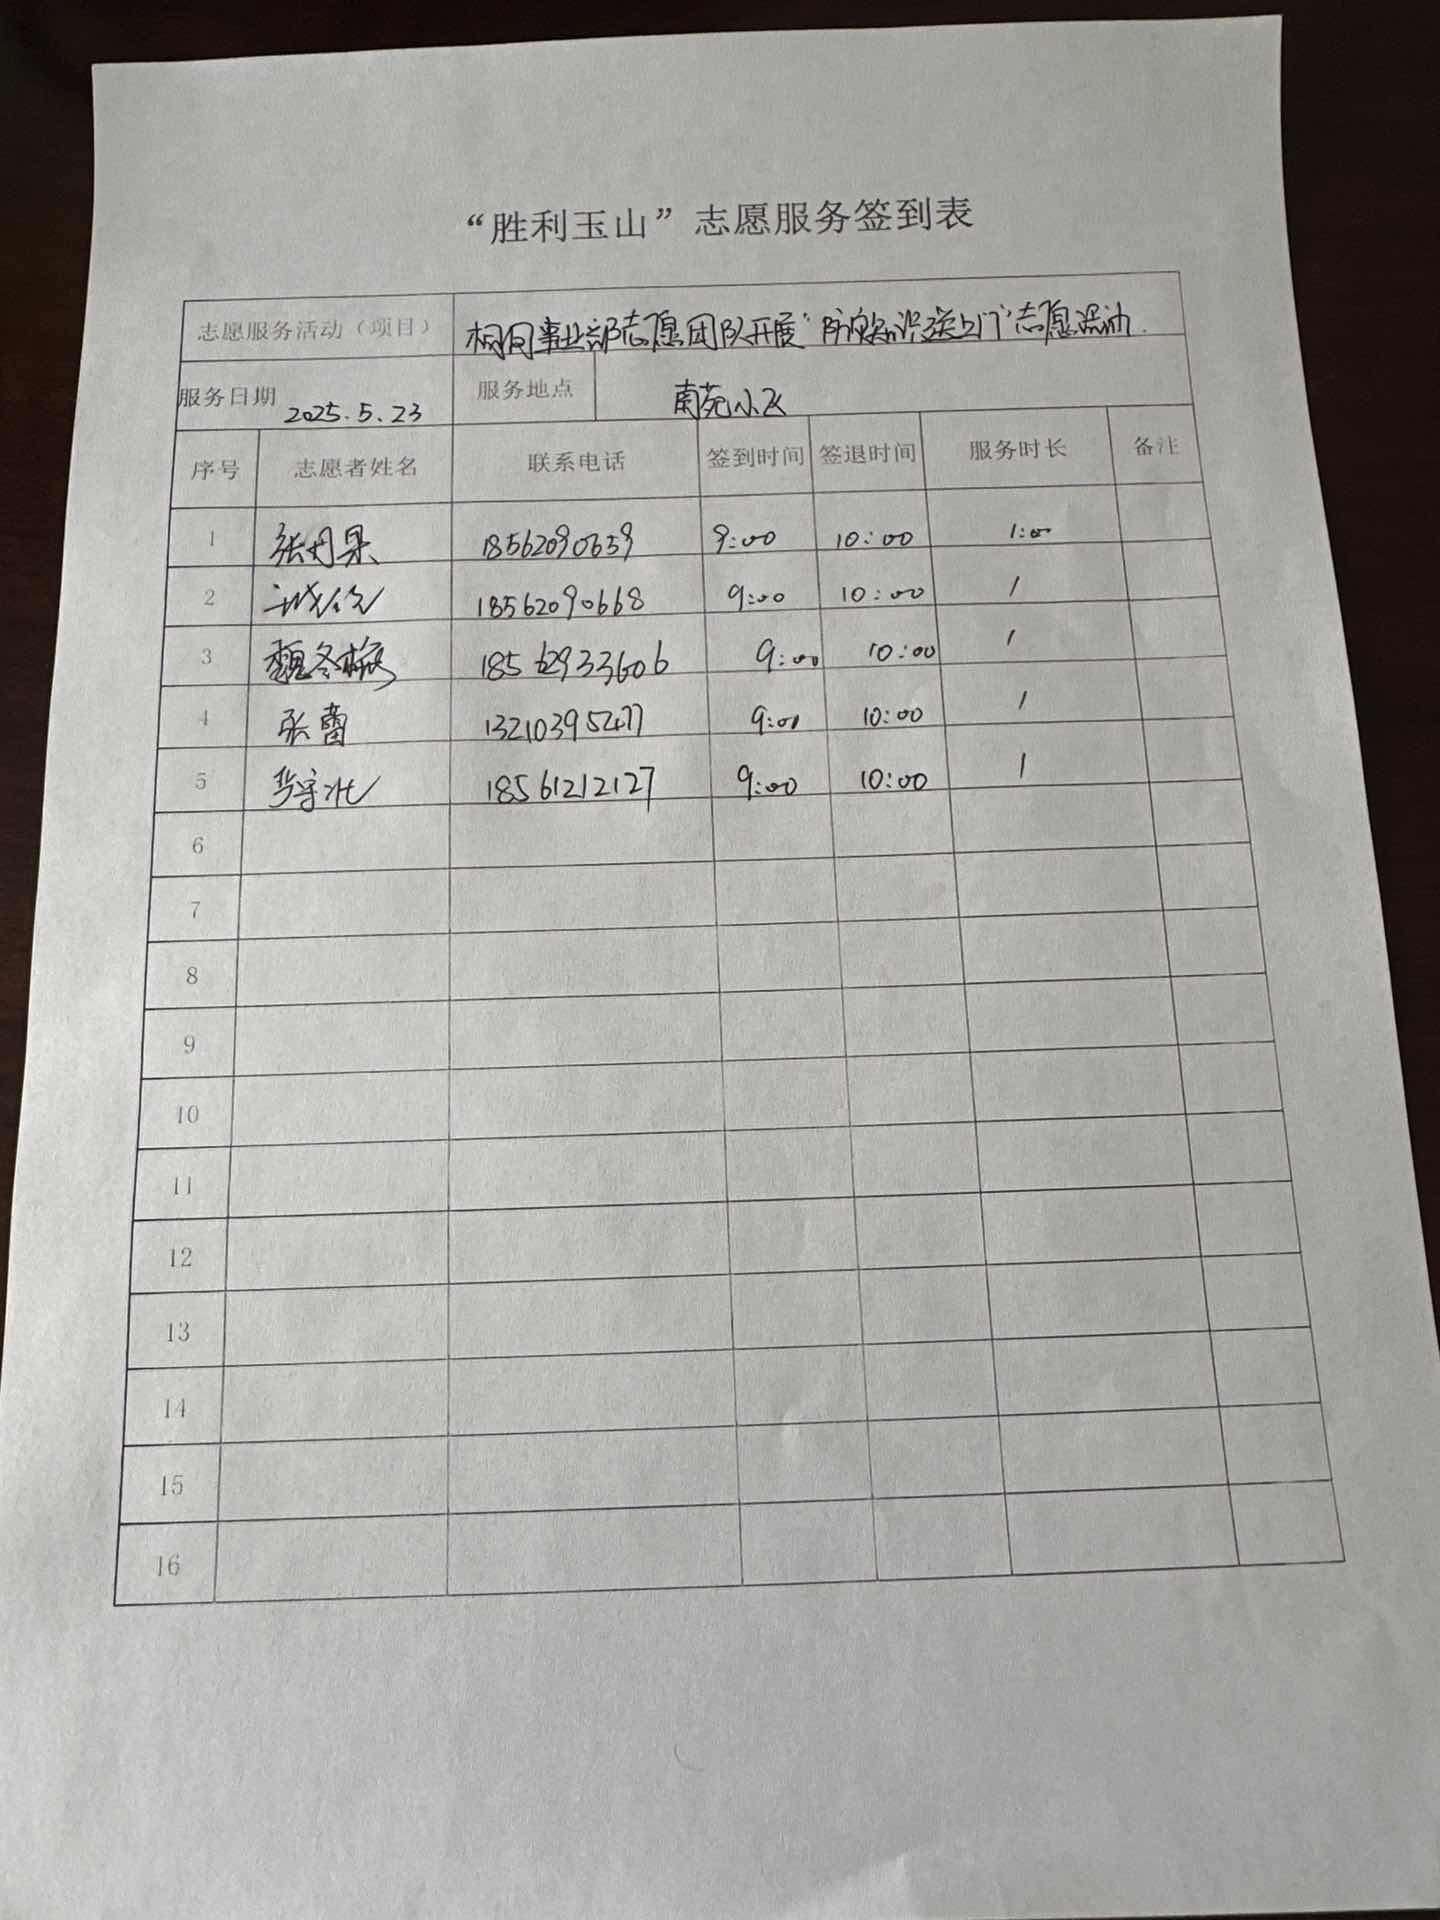 “胜利玉山”志愿服务签到表
志愿服务活动（项目） 桐同事业部志愿团队开展“防灾知识送上门”志愿活动.
服务日期 2025.5.23 服务地点 南苑小区
序号 志愿者姓名 联系电话 签到时间 签退时间 服务时长 备注
1 张丹果 18562090659 9:00 10:00 1:00
2 18562090668 9:00 10:00 1
3 魏冬梅 18562933606 9:00 10:00 1
4 张蕾 13210395477 9:00 10:00 1
5 18561212127 9:00 10:00 1
6
7
8
9
10
11
12
13
14
15
16